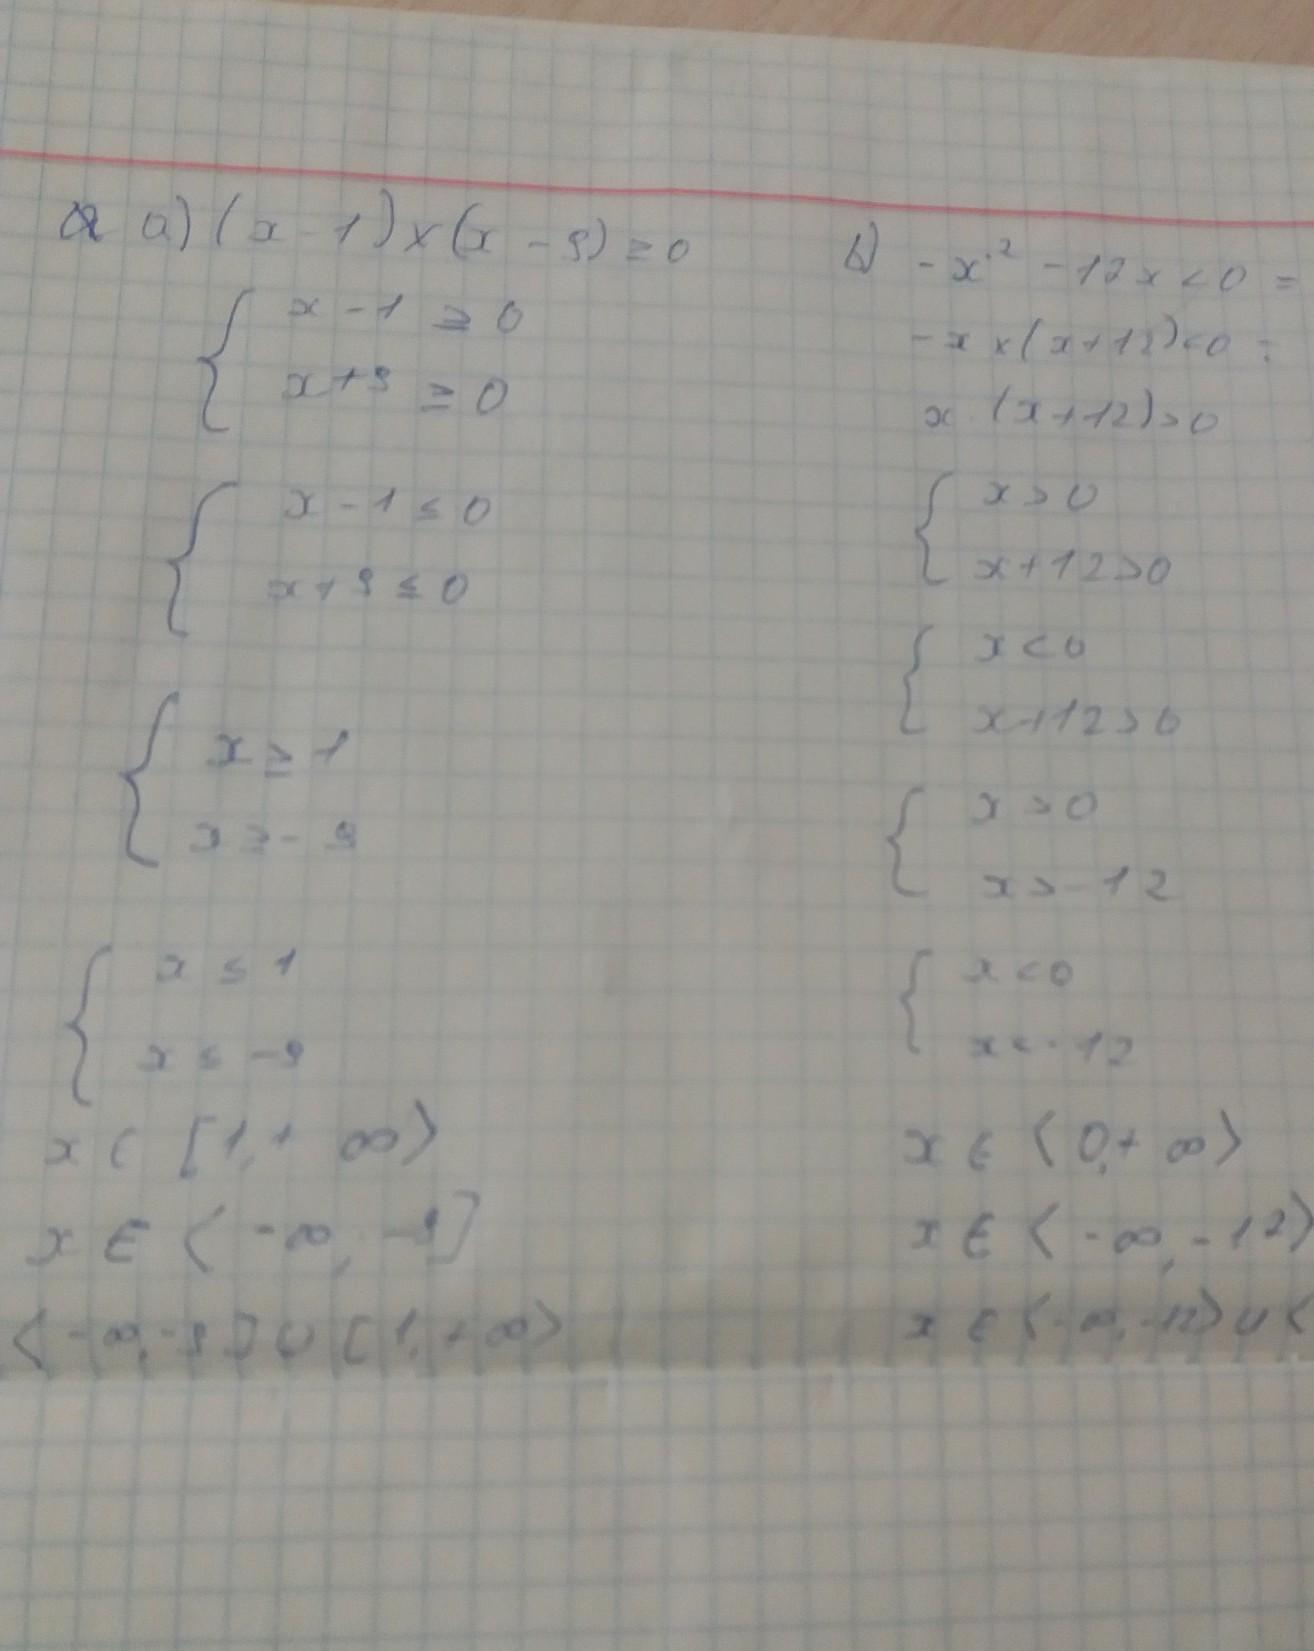 a) (x - 1) × (x - 9) ≥ 0
{ x - 1 ≥ 0
x + 9 ≥ 0
{ x - 1 ≤ 0
x + 9 ≤ 0
{ x ≥ 1
x ≥ - 9
{ x ≤ 1
x ≤ -9
x ∈ [1, + ∞⟩
x ∈ ⟨ -∞, -9]
⟨ -∞, -9] ∪ [1, +∞⟩
b) -x² - 12x < 0 =
-x × (x+12) < 0 =
x · (x+12) > 0
{ x > 0
x+12 > 0
{ x < 0
x+12 > 0
{ x > 0
x > -12
{ x < 0
x < -12
x ∈ ⟨0, + ∞⟩
x ∈ ⟨ -∞, -12⟩
x ∈ ⟨-∞, -12⟩ ∪ ⟨